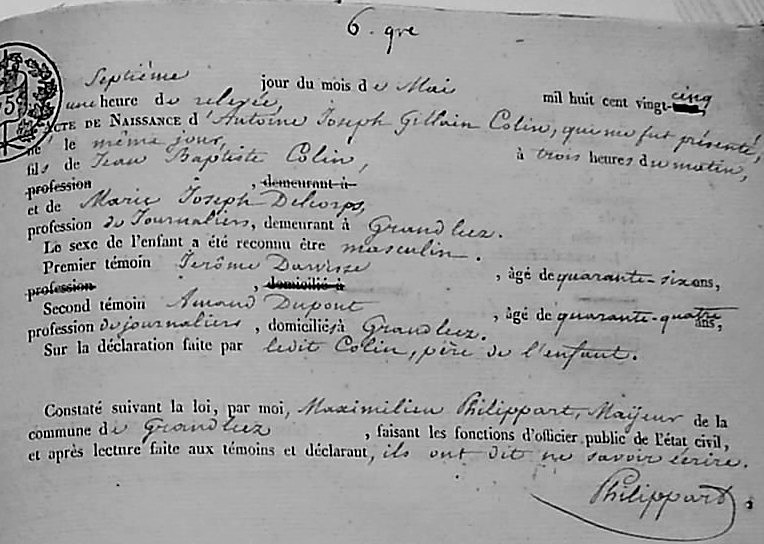 6. gre
Septième jour du mois de Mai mil huit cent vingt-cinq
une heure de relevée,
ACTE DE NAISSANCE d'Antoine Joseph Gillain Colin, qui me fut présenté,
né le même jour, à trois heures du matin,
fils de Jean Baptiste Colin,
profession , demeurant à
et de Marie Joseph Delcorps,
profession de Journaliers, demeurant à Grandleez.
Le sexe de l'enfant a été reconnu être masculin.
Premier témoin Jerôme Dawisse , âgé de quarante-six ans,
profession , domicilié à
Second témoin Amand Dupont , âgé de quarante-quatre ans,
profession de journaliers , domiciliés à Grandleez.
Sur la déclaration faite par ledit Colin, père de l'enfant.
Constaté suivant la loi, par moi, Maximilien Philippart, Maÿeur de la
commune de Grandleez , faisant les fonctions d'officier public de l'état civil,
et après lecture faite aux témoins et déclarant, ils ont dit ne savoir écrire.
Philippart